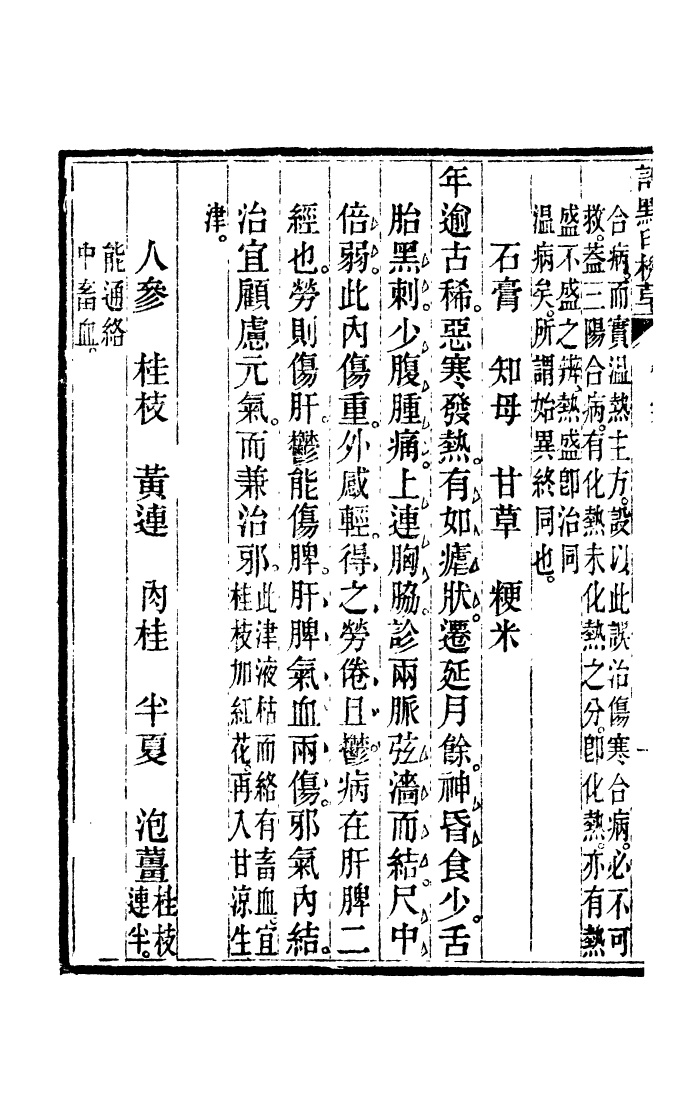 合病而實温熱主方設以此誤治傷寒合病必不可
救蓋三陽合病有化熱未化熱之分卽化熱亦有熱
盛不盛之辨熱盛卽治同
温病矣所謂始異終同也
石膏　知母　甘草　粳米
年逾古稀。惡寒發熱。有如瘧狀。遷延月餘。神昏食少。舌
胎黑刺。少腹腫痛。上連胸脇。診兩脈弦濇而結。尺中
倍弱。此內傷重。外感輕。得之勞倦且鬱。病在肝脾二
經也。勞則傷肝。鬱能傷脾。肝脾氣血兩傷。邪氣內結。
治宜顧慮元氣。而兼治邪。此津液枯而絡有畜血。宜
桂枝加紅花。再入甘涼生
津。
人參　桂枝　黃連　肉桂　半夏　泡薑桂枝
連半。
能通絡
中畜血。